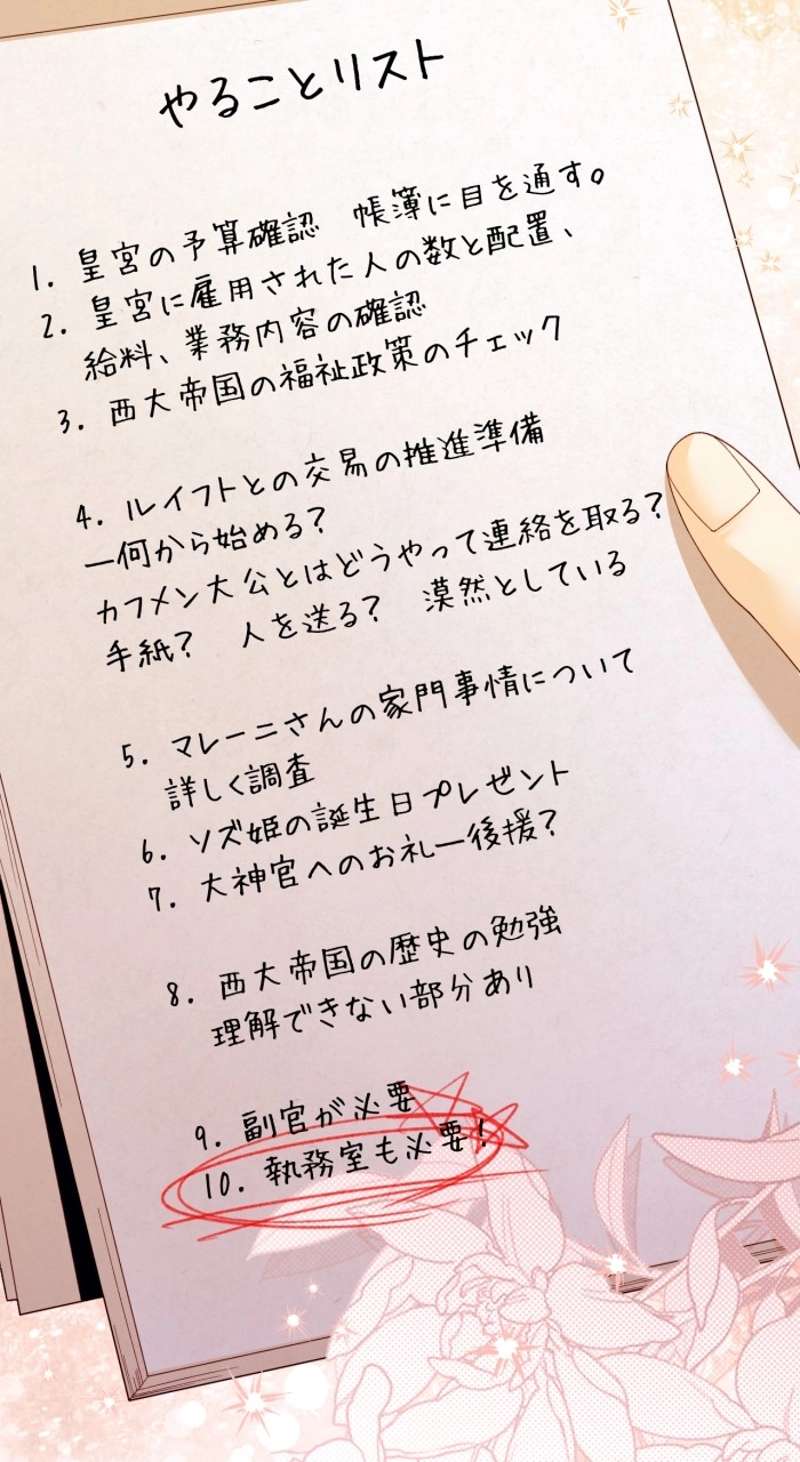 やることリスト
1. 皇宮の予算確認　帳簿に目を通す。
2. 皇宮に雇用された人の数と配置、
給料、業務内容の確認
3. 西大帝国の福祉政策のチェック
4. ルイフトとの交易の推進準備
ー何から始める?
カフメン大公とはどうやって連絡を取る?
手紙?　人を送る?　漠然としている
5. マレーニさんの家門事情について
詳しく調査
6. ソズ姫の誕生日プレゼント
7. 大神官へのお礼ー後援?
8. 西大帝国の歴史の勉強
理解できない部分あり
9. 副官が必要
10. 執務室も必要!